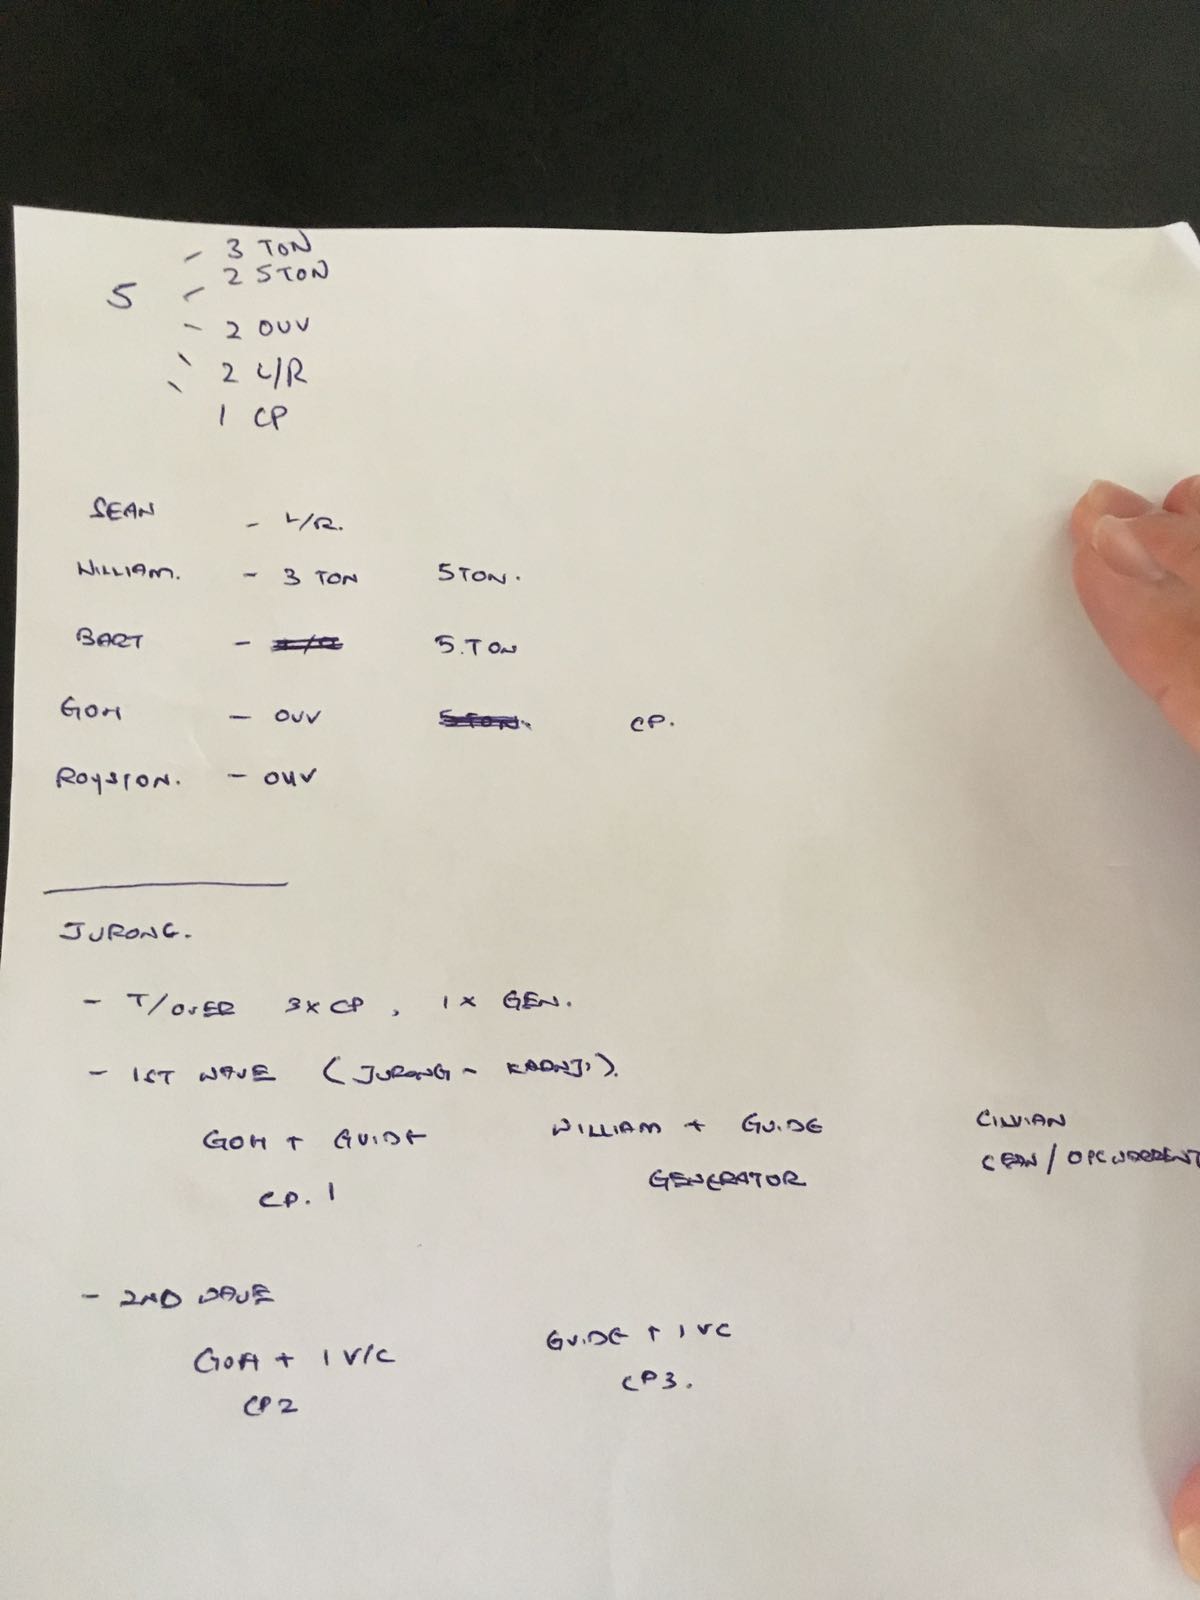 - 3 TON
5 - 2 5TON
- 2 OUV
- 2 L/R
- 1 CP
SEAN - L/R.
WILLIAM. - 3 TON 5TON.
BART - 5.TON
GOH - OUV 5TON. CP.
ROYSTON. - OUV
JURONG.
- T/OVER 3X CP, 1X GEN.
- 1ST WAVE (JURONG - KRANJI).
GOH + GUIDE WILLIAM + GUIDE CILVIAN
CP. 1 GENERATOR CEAN/
- 2ND WAVE
GOH + 1 V/C GUIDE + 1 VC
CP2 CP3.